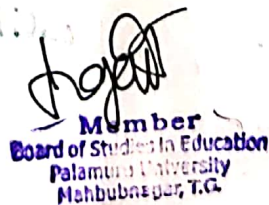 Member
Board of Studies in Education
Palamuru University
Mahbubnagar, T.G.